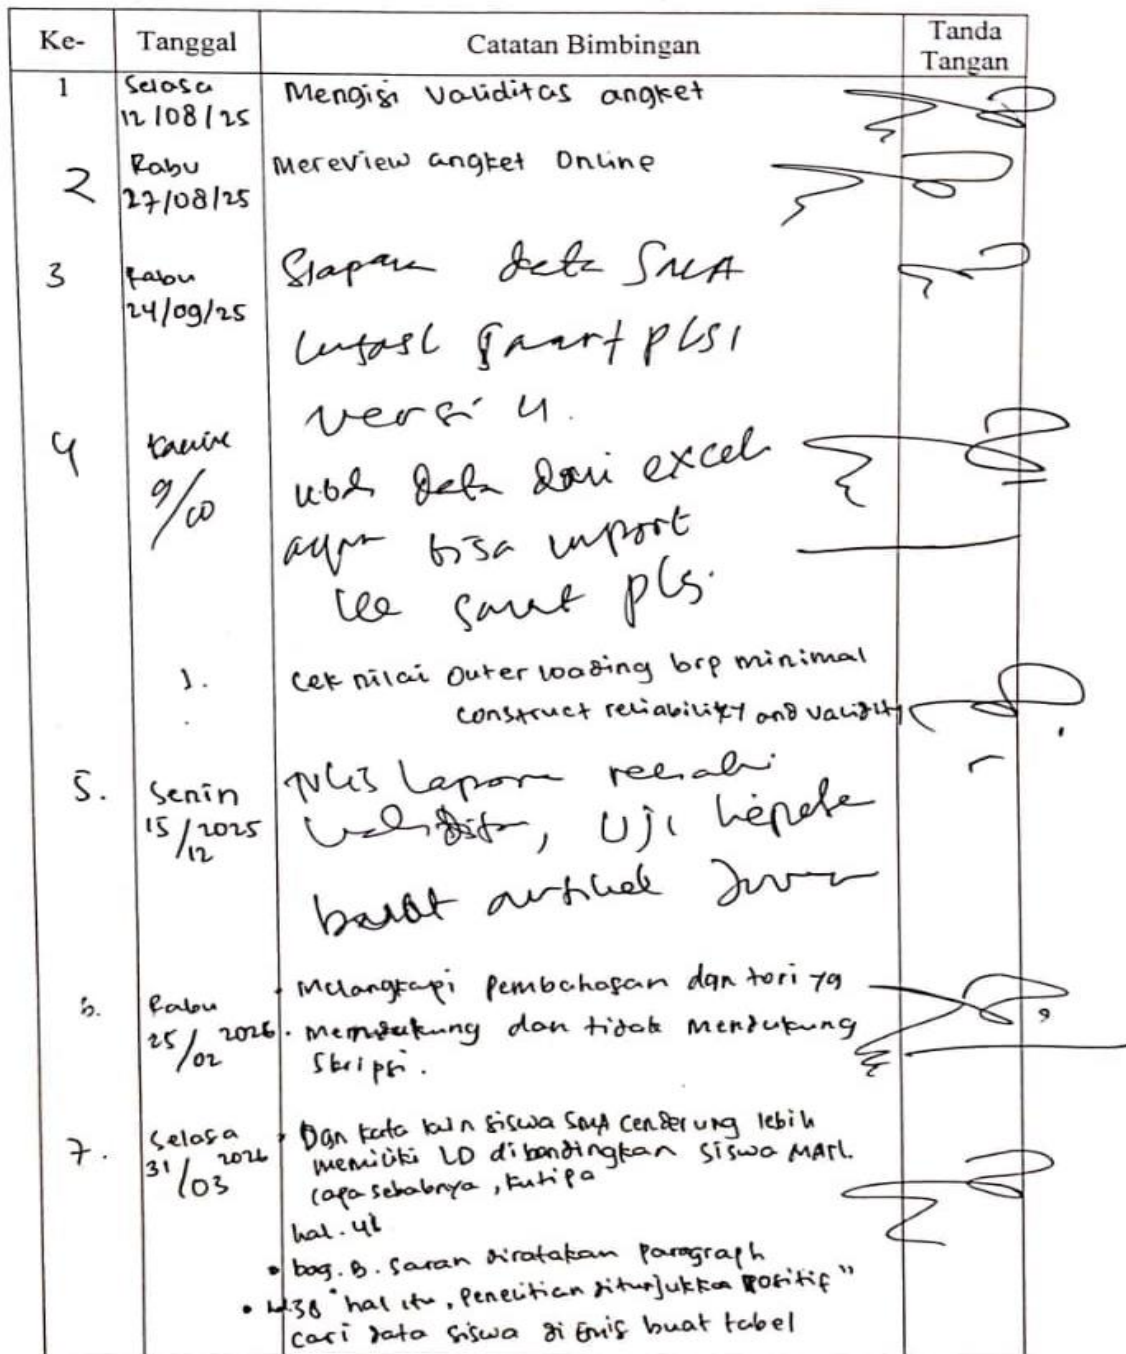 Ke- Tanggal Catatan Bimbingan Tanda Tangan
1 Selasa Mengisi Validitas angket
12/08/25
2 Rabu Mereview angket Online
27/08/25
3 Rabu Siapan data SMA
24/09/25
Smart PLS
versi 4.
4 Kamis data dari excel
9/10
agar bisa import
ke Smart pls.
1. Cek nilai Outer loading brp minimal
construct reliability and validity
5. Senin Tulis laporan reliabi
15/12 2025 validitas, Uji
buat artikel
6. Rabu Melangkapi pembahasan dan tori yg
25/02 2026 mendukung dan tidak mendukung
Skripsi.
7. Selasa Dgn kata lain siswa SMA cenderung lebih
31/03 2026 memiliki LD dibandingkan siswa MAN.
(apa sebabnya, kutipa
hal. 46
• bag. B. saran diratakan paragraph
• "hal itu, penelitian ditunjukkan positif"
cari data siswa di Emis buat tabel